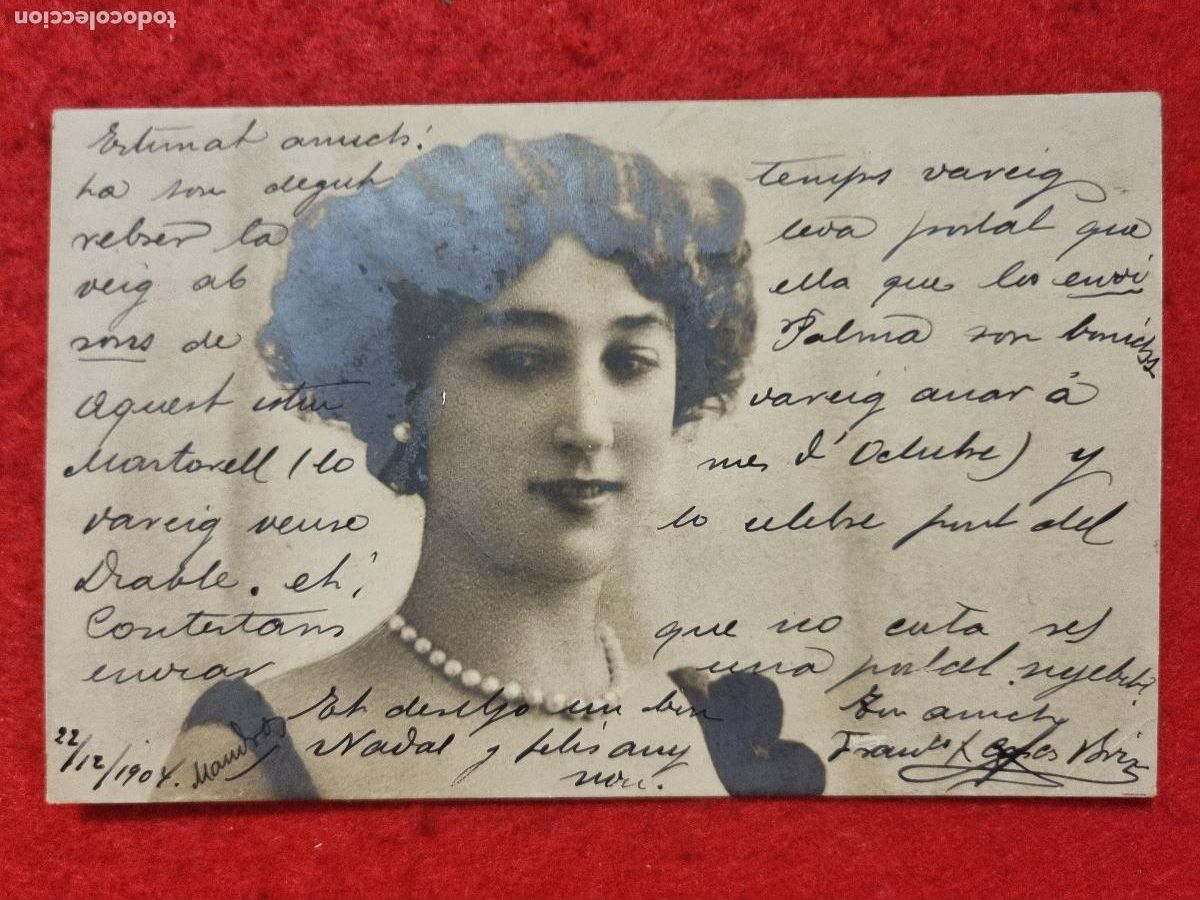 todocoleccion
Estimat amich:
ha son degut temps vareig
rebrer la teva postal que
veig ab ella que los envi
sons de Palma son bonichs
Aquest istiu vareig anar á
Martorell (lo mes d'Octubre) y
vareig veuse lo celebre pont del
Diable. eh!
Contestans que no costa res
enviar una postal
Et desitjo un bon Ton amich
Nadal y felis any
nou.
22/12/1904.